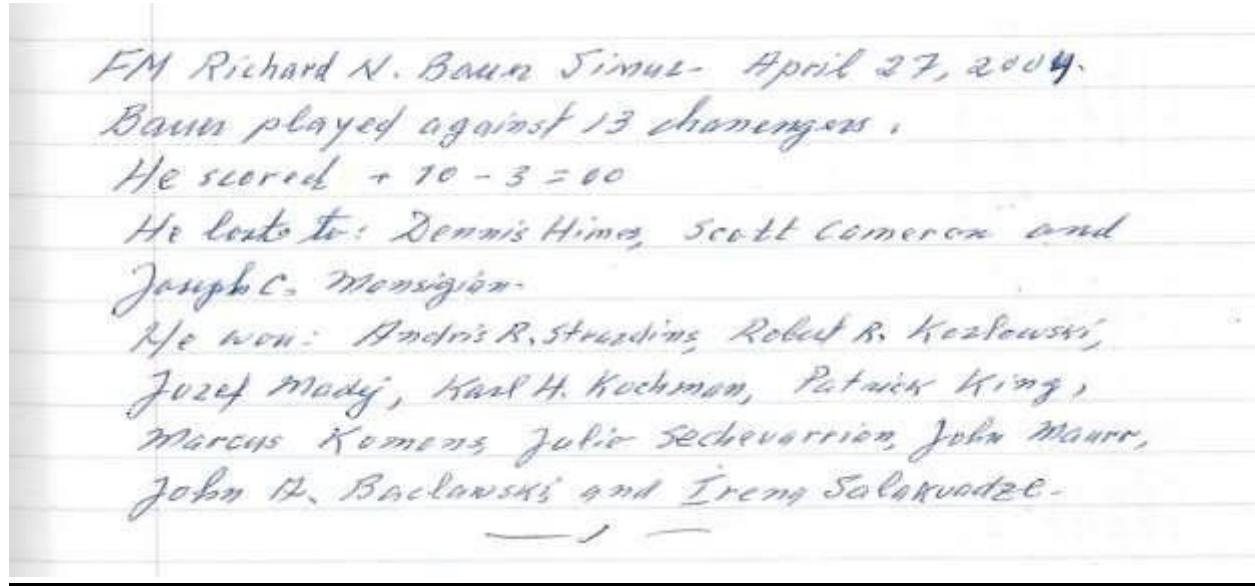 FM Richard N. Baun Simul- April 27, 2004.
Baun played against 13 chanengers.
He scored + 10 - 3 = 00
He losts to: Dennis Himes, Scott Cameron and
Joseph C. Monsigian-
He won: Andris R. Strazdins, Robert R. Kozlowski,
Jozef Mody, Karl H. Kochman, Patrick King,
Marcus Komons, Julio Sechevarrion, John Maurr,
John A. Baclawski and Irena Salakuadze-